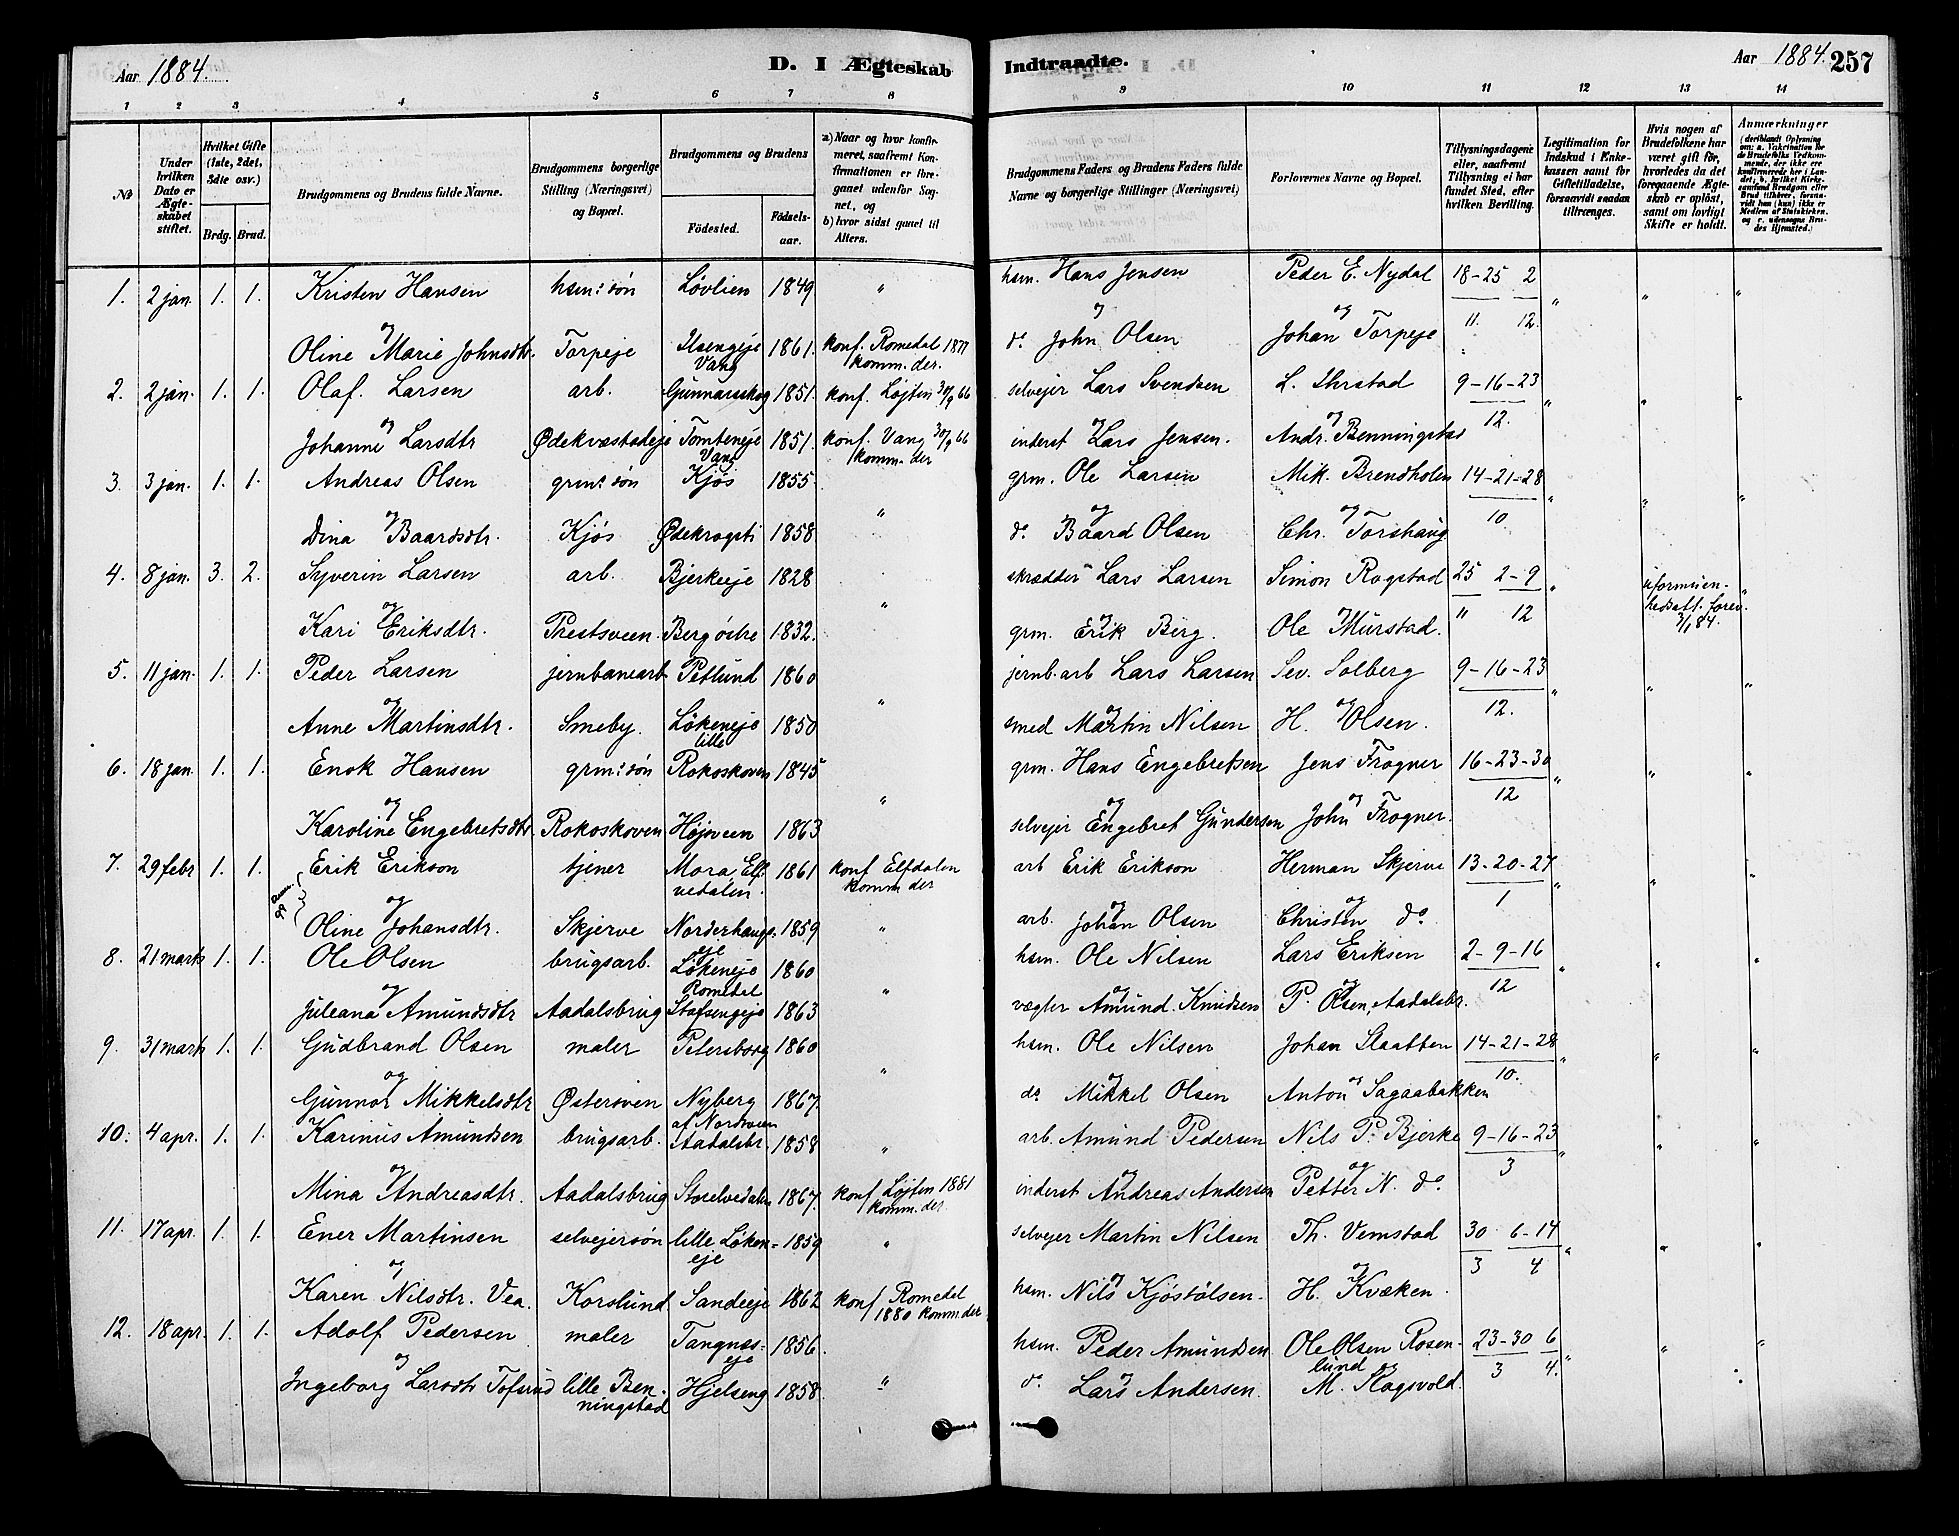 Aar 1884.
D. I Ægteskab Indtraadte.
Aar 1884. 257
1 2 3 4 5 6 7 8 9 10 11 12 13 14
No
Under hvilken Dato er Ægteskabet stiftet.
Hvilket Gifte (1ste, 2det, 3die osv.)
Brdg. Brud.
Brudgommens og Brudens fulde Navne.
Brudgommens borgerlige Stilling (Næringsvei) og Bopæl.
Brudgommens og Brudens
Födested. Födselsaar.
a) Naar og hvor konfirmeret, saafremt Konfirmationen er foregaaet udenfor Sognet, og
b) hvor sidst gaaet til Alters.
Brudgommens Faders og Brudens Faders fulde Navne og borgerlige Stillinger (Næringsvei)
Forlovernes Navne og Bopæl.
Tillysningsdagene eller, saafremt Tillysning ei har fundet Sted, efter hvilken Bevilling.
Legitimation for Indskud i Enkekassen samt for Giftetilladelse, forsaavidt saadan tiltrænges.
Hvis nogen af Brudefolkene har været gift för, hvorledes da det foregaaende Ægteskab er oplöst, samt om lovligt Skifte er holdt.
Anmærkninger (deriblandt Oplysning om: a. Vakcination for de Brudefolks Vedkommende, der ikke ere konfirmerede her i Landet; b. hvilket Kirkesamfund Brudgom eller Brud tilhörer, forsaavidt han (hun) ikke er Medlem af Statskirken, og c. udensogns Brudes Hjemsted.)
1. 2 jan. 1. 1. Kristen Hansen hsm:søn Løvlien 1849 " hsm. Hans Jensen Peder E. Nydal 18-25 2 " " "
og og og 11. 12.
Oline Marie Johnsdtr. Torpeje Ilsengeje Vang 1861. konf. Romedal 1877 komm. der. do John Olsen Johan Torpeje
2. 2 jan. 1. 1. Olaf. Larsen arb. Gunnarsskog 1851. konf. Løjten 30/9 66 selvejer Lars Svendsen 9-16-23 " " "
og og og 12.
Johanne Larsdtr Ødekvæstadeje Tomteneje Vang 1851. konf. Vang 30/9 66 komm. der inderst Lars Jensen. Andr. Benningstad
3. 3 jan. 1. 1. Andreas Olsen grm:søn Kjøs 1855. " grm. Ole Larsen Mik. Brendholen 14-21-28 " " "
og og og 10
Dina Baardsdtr. Kjøs Ødekrogsti 1858 do Baard Olsen Chr. Torshaug
4. 8 jan. 3. 2. Syverin Larsen arb. Bjerkeeje 1828 " skrædder Lars Larsen Simon Rogstad 25 2-9 " uformuenhedsatt. forev. 2/1 84. "
og og og 11 12
Kari Eriksdtr. Prestsveen. Berg østre 1832. grm. Erik Berg. Ole Murstad.
5. 11 jan. 1. 1. Peder Larsen jernbanearb Petlund 1860 " jernb.arb Lars Larsen Sev. Solberg 9-16-23 " " "
og og og 12.
Anne Martinsdtr. Smeby. Løkeneje lille 1850 smed Martin Nilsen H. Olsen.
6. 18 jan. 1. 1. Enok Hansen grm:søn Rokoskoven 1845 " grm. Hans Engebretsen Jens Frogner 16-23-30 " " "
og og og 12
Karoline Engebretsdtr. Rokoskoven Højsveen 1863 selvejer Engebret Gundersen John Frogner.
7. 29 febr 1. 1. Erik Erikson tjener Mora, Elfvedalen. 1861 konf Elfdalen komm der arb Erik Erikson Herman Skjerve 13-20-27 " " "
og og og 1
Oline Johansdtr. Skjerve Norderhaugseje 1859 " arb. Johan Olsen Christen do
8. 21 marts 1. 1. Ole Olsen brugsarb. Løkeneje Romedal 1860 " hsm. Ole Nilsen Lars Eriksen 2-9-16 " " "
og og og 12
Juleana Amundsdtr Aadalsbrug Stafsengeje 1863 vægter Amund Knudsen P. Olsen, Aadalsbr.
9. 31 marts 1. 1. Gudbrand Olsen maler Petersborg 1860 " hsm. Ole Nilsen Johan Slaatten 14-21-28 " " "
og og og 10.
Gunnor Mikkelsdtr Østeroven Nyberg af Nordsveen 1867. do Mikkel Olsen Anton Sagaabakken
10. 4 apr. 1. 1. Karinus Amundsen brugsarb. Aadalsbr. 1858 " arb. Amund Pedersen Nils P. Bjerke 9-16-23 " " "
og og og 3
Mina Andreasdtr. Aadalsbrug Storelvedalen 1867. konf Løjten 1881 komm. der. inderst Andreas Andersen Petter N. do
11. 17 apr. 1. 1. Ener Martinsen selvejersøn lille Løkeneje 1859 " selvejer Martin Nilsen Th. Vemstad 30 6-14 " " "
og og og 3 4
Karen Nilsdtr. Vea. Korslund Sandeeje 1862 konf Romedal 1880 komm. der hsm. Nils Kjøstølsen. H. Kvæken.
12. 18 apr. 1. 1. Adolf Pedersen maler Tangnæseje 1856. " hsm. Peder Amundsen Ole Olsen Rosenlund 23-30 6 " " "
og og og 3 4.
Ingeborg Larsdtr Tofsrud lille Benningstad Hjelseng 1858. do Lars Andersen. M. Skogvold.